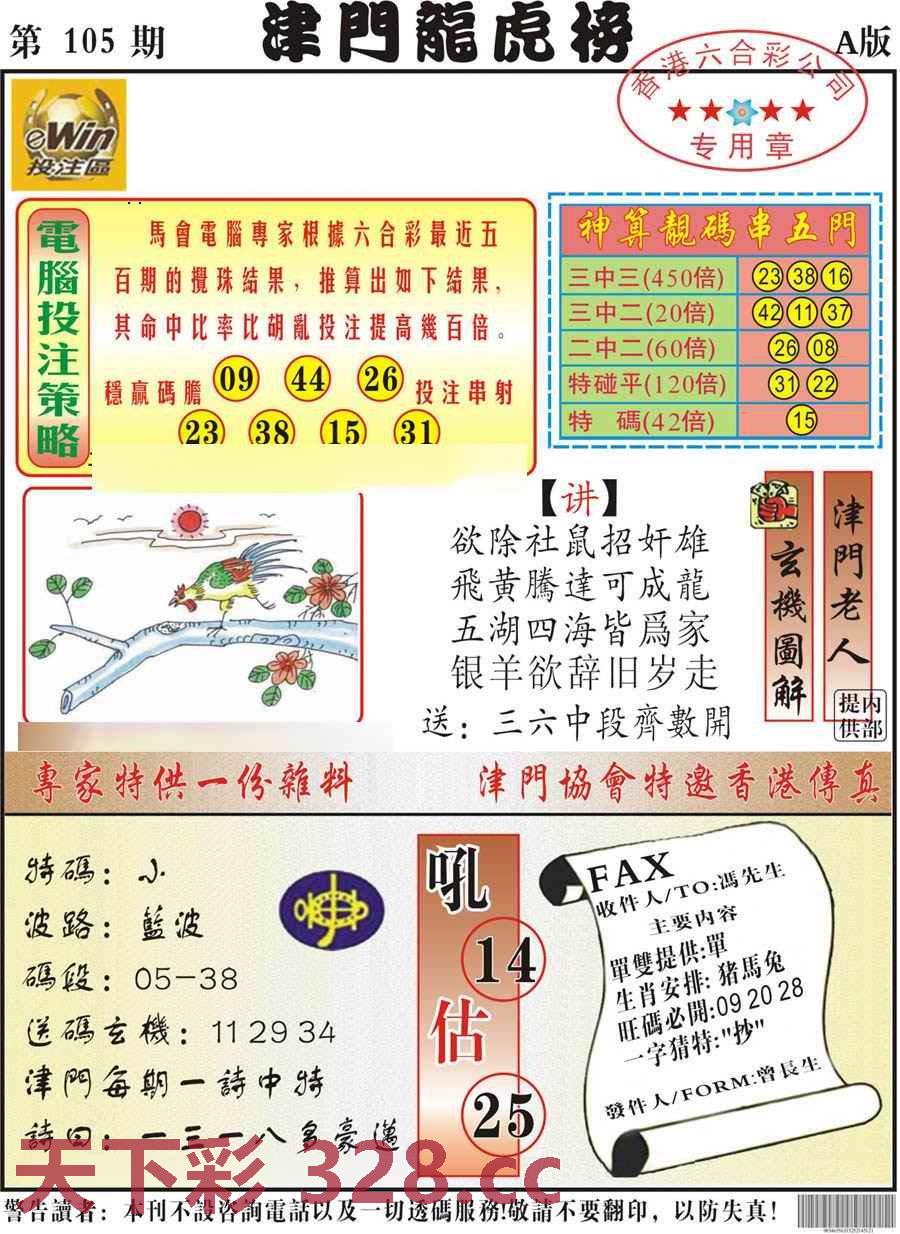 第 105 期
津門龍虎榜
A版
香港六合彩公司
专用章
eWin
投注區
電腦投注策略
馬會電腦專家根據六合彩最近五
百期的攪珠结果，推算出如下结果，
其命中比率比胡亂投注提高幾百倍。
穩贏碼膽 09 44 26 投注串射
23 38 15 31
神算靚碼串五門
三中三(450倍) 23 38 16
三中二(20倍) 42 11 37
二中二(60倍) 26 08
特碰平(120倍) 31 22
特 碼(42倍) 15
【讲】
欲除社鼠招奸雄
飛黄騰達可成龍
五湖四海皆爲家
银羊欲辞旧岁走
送：三六中段齊數開
玄機圖解
津門老人
内部提供
專家特供一份雜料
津門協會特邀香港傳真
特碼：小
波路：藍波
碼段：05-38
送碼玄機：11 29 34
津門每期一詩中特
詩曰：一三一八多豪邁
吼
14
估
25
FAX
收件人/TO:馮先生
主要内容
單雙提供:單
生肖安排:猪馬兔
旺碼必開:09 20 28
一字猜特:"抄"
發件人/FORM:曾長生
天下彩 328.cc
警告讀者：本刊不設咨詢電話以及一切透碼服務!敬請不要翻印，以防失真!